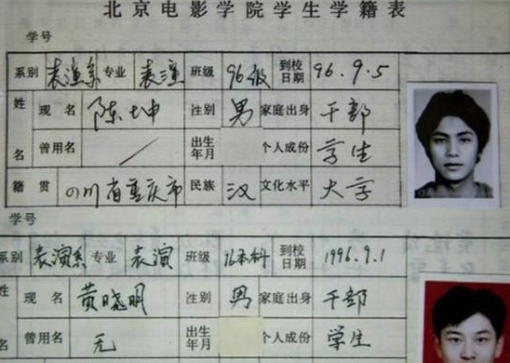 北京电影学院学生学籍表
学号
系别 表演系 专业 表演 班级 96级 到校日期 96.9.5
姓名 现名 陈坤 性别 男 家庭出身 干部
曾用名 / 出生年月 个人成份 学生
籍贯 四川省重庆市 民族 汉 文化水平 大学
学号
系别 表演系 专业 表演 班级 96本科 到校日期 1996.9.1
姓 现名 黄晓明 性别 男 家庭出身 干部
名 曾用名 无 出生年月 个人成份 学生